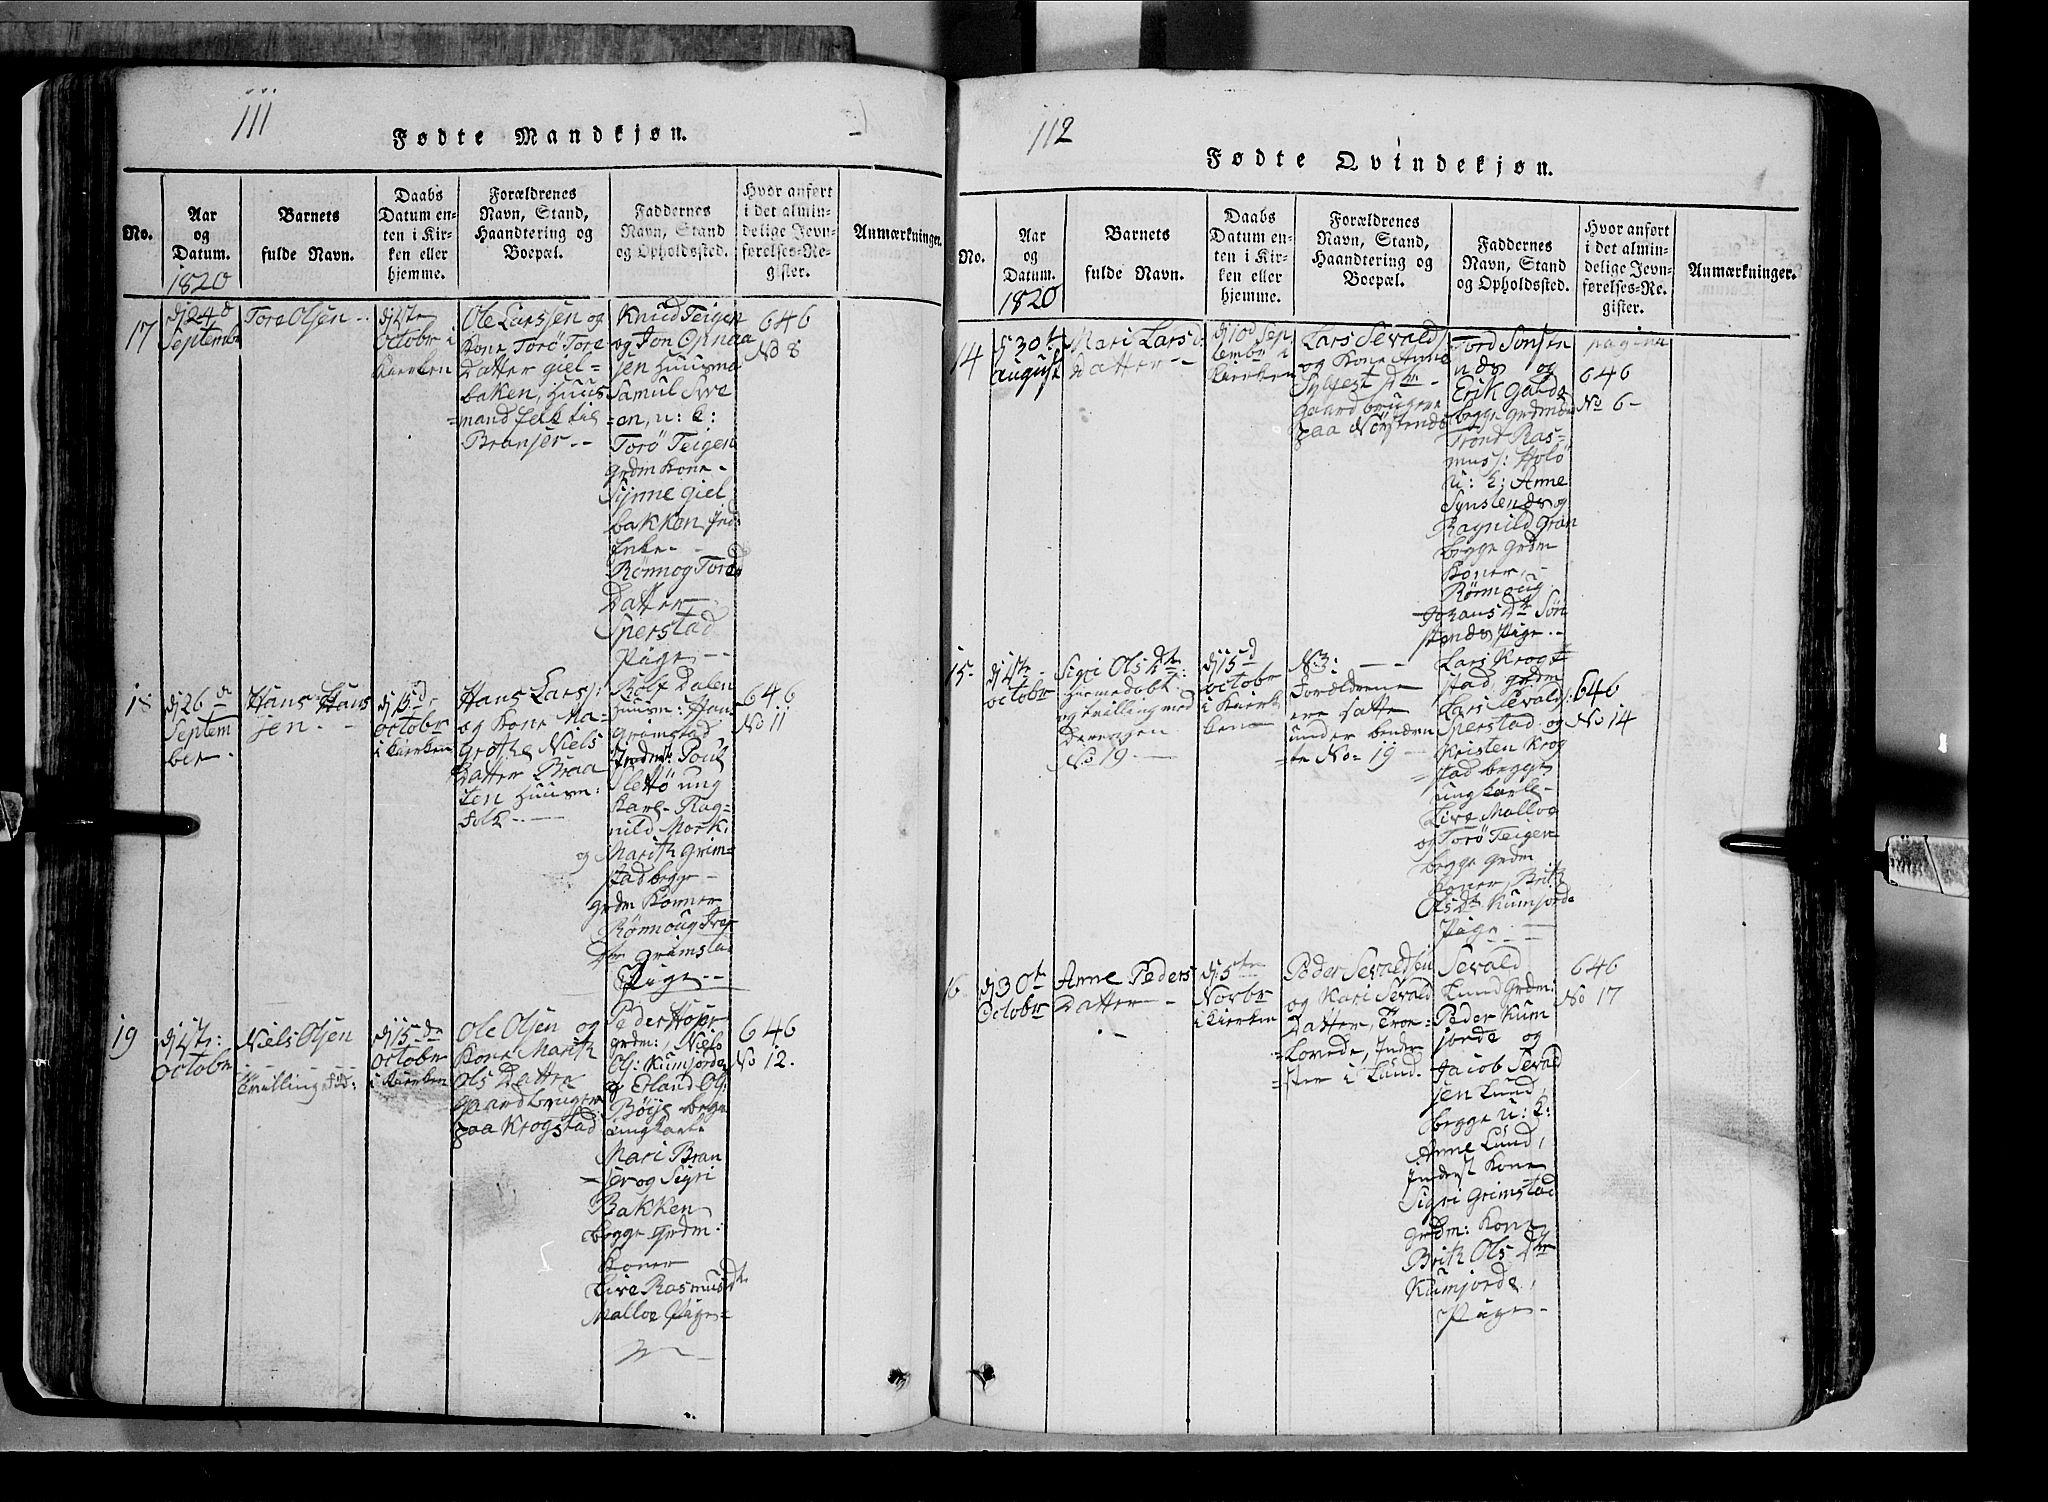 111
Fødte Mandkjøn.
No.
Aar
og
Datum.
1820
Barnets
fulde Navn.
Daabs
Datum en-
ten i Kir-
ken eller
hjemme.
Forældrenes
Navn, Stand,
Haandtering og
Boepæl.
Faddernes
Navn, Stand
og Opholdssted.
Hvor anført
i det almin-
delige Jevn-
førelses-Re-
gister.
Anmærkninger.
17
dj 24d
Septembr
Tore Olsen
octobr i
Kierken
Ole Larssen og
Kone Torø Tore
Datter giel=
baken, Huus
=mand folk til
Branser
Knud Teigen
Samul Sve
=en, u: k:
Torø Teigen
grdm Kone
Synne giel
bakken
Enke
Rønnog Tores
Datter
Sperstad
Pige
646
No 8
18
dj 26de
Septem
ber
Hans Hans
sen
dj 15d
octobr
i Kierken
Hans Larss:
og Kone Ma-
grethe Niels
Datter Braa
ten Huusm:
folk
Rolf Dalen
Huusm:
Grimstad
Poul
Slettø ung
karl Rag-
nild Mork
og Marith Grim=
stad begge
grdm Konner
Rønnoug
Dtr Grimstad
Pige
646
No 11
19
octobr
Niels Olsen
dj 15de
octobr
i Kierken
Ole Olsen og
Kone Marith
Ols Datter
gaardbruger
paa Krogstad
Peder
grdm:, Niels
Ols: Kumjorde
og Erland Ols:
Böye begge
ungkarle
Mari Bran
=ser og Sigri
Bakken
begge grdm:
Koner
Live Rasmusdt
Malloe Pige
646
No 12.
112
Fødte Qvindekjøn.
No.
Aar
og
Datum.
1820
Barnets
fulde Navn.
Daabs
Datum en-
ten i Kir-
ken eller
hjemme.
Forældrenes
Navn, Stand,
Haandtering og
Boepæl.
Faddernes
Navn, Stand
og Opholdssted.
Hvor anført
i det almin-
delige Jevn-
førelses-Re-
gister.
Anmærkninger.
14
dj 30t
August
Mari Lars
Datter
dj 10d Sep
tembr i
Kierken
Lars Sevalds
og Kone Anne
Sylfest Dtr
gaardbrugere
paa
og
Erik
begge grdmænd
Trond Ras=
muss: Holö
u: k: Anne
Synstendes og
Ragnild Grön
begge grdm
Koner,
Rønnoug
Pige
pagina
646
No 6
15
octobr
Sigri Ols Dtr:
Hiemedøbt
og tvilling med
No 19
dj 15d
octobr
i Kierk
ken
N3:
Foreldrene
ere satte
under benævn
=te No 19
Lars Krog
stad, grdm
Lars Sevalds:
Sperstad og
Kristen Krog
=stad begge
ungkarle
Live Malloe
og Torø Teigen
begge grdm
Koner, Brith
Ols Dtr Kumjorde
Pige
646
No 14
16
dj 30t
Octobr
Anne Peders
Datter
dj 5te
Novbr
i Kierken
Peder Sevaldsen
og Kari Sevald
Datter,
Inder
=ster i Lund.
Sevald
Lund grdm:
Peder Kum
jorde og
Jacob Sevald
sen Lund,
begge u: k:
Anne Lund,
Inderst Kone
Sigri Grimstad
grdm: Kone
Brith Ols Dtr
Kumjorde,
Pige
646
No 17